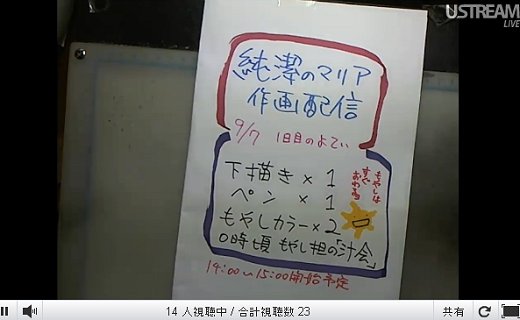 USTREAM
LIVE
純潔のマリア
作画配信
9/7 1日目のよてい
下描き×1
ペン×1
もやしカラー×2
0時頃 もやし担の「汁会」
もやしは
すぐ
おわる
14:00〜15:00開始予定
14 人視聴中 / 合計視聴数 23
共有